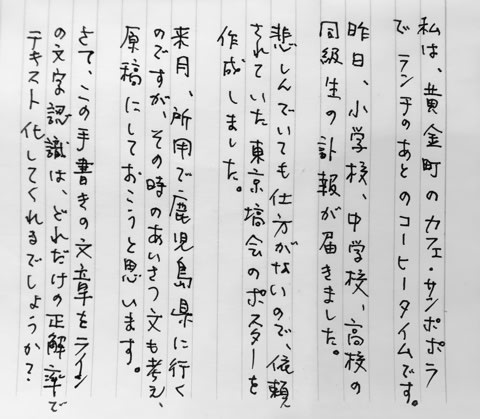 私は、黄金町のカフェ・サンポポラ
でランチのあとのコーヒータイムです。
昨日、小学校、中学校、高校の
同級生の訃報が届きました。
悲しんでいても仕方がないので、依頼
されていた東京塙会のポスターを
作成しました。
来月、所用で鹿児島県に行く
のですが、その時のあいさつ文も考え、
原稿にしておこうと思います。
さて、この手書きの文章をライン
の文字認識は、どれだけの正解率で
テキスト化してくれるでしょうか?